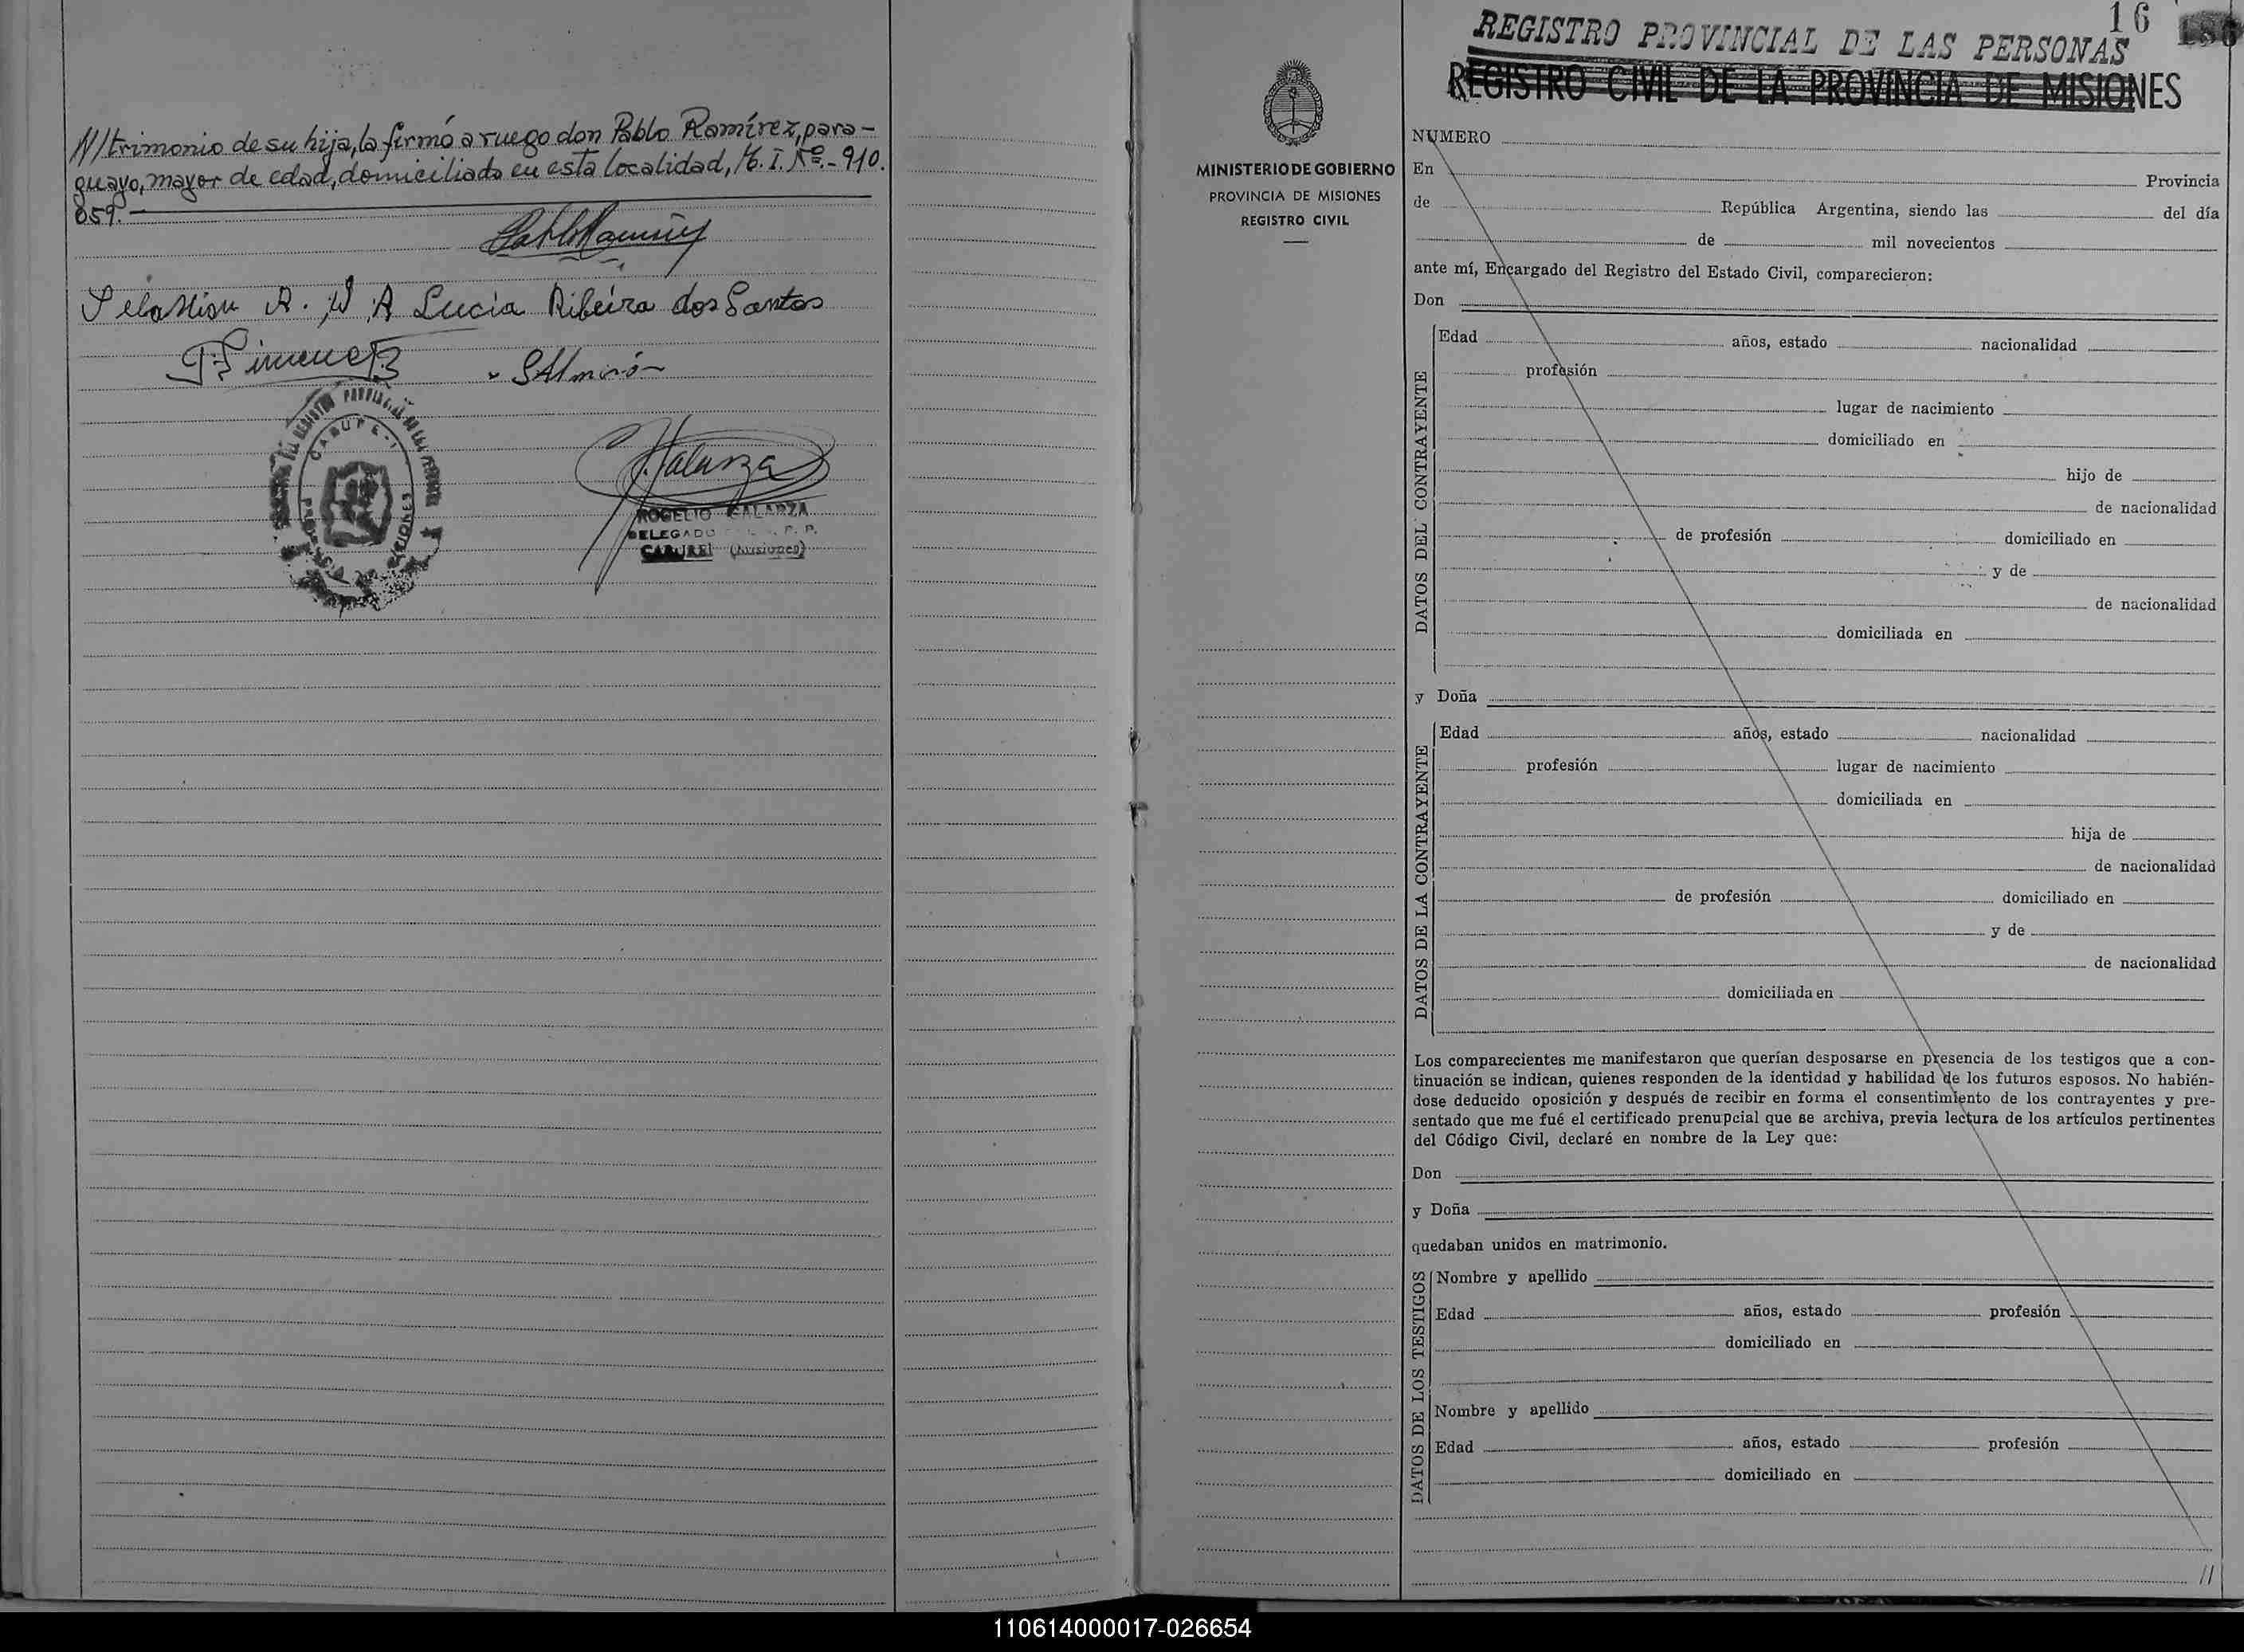 //trimonio de su hija, la firmó a ruego don Pablo Ramírez, para-
guayo, mayor de edad, domiciliado en esta localidad, M. I. Nº.- 910.
059.-
Pablo Ramirez
A. Lucia Ribeira dos Santos
Gimenez
SAlmirón
CABURE-I
Galarza
ROGELIO GALARZA
DELEGADO R. P. P.
CABUREI (Misiones)
MINISTERIO DE GOBIERNO
PROVINCIA DE MISIONES
REGISTRO CIVIL
16
186
REGISTRO PROVINCIAL DE LAS PERSONAS
REGISTRO CIVIL DE LA PROVINCIA DE MISIONES
NUMERO
En Provincia
de República Argentina, siendo las del día
de mil novecientos
ante mí, Encargado del Registro del Estado Civil, comparecieron:
Don
DATOS DEL CONTRAYENTE
Edad años, estado nacionalidad
profesión
lugar de nacimiento
domiciliado en
hijo de
de nacionalidad
de profesión domiciliado en
y de
de nacionalidad
domiciliada en
y Doña
DATOS DE LA CONTRAYENTE
Edad años, estado nacionalidad
profesión lugar de nacimiento
domiciliada en
hija de
de nacionalidad
de profesión domiciliado en
y de
de nacionalidad
domiciliada en
Los comparecientes me manifestaron que querían desposarse en presencia de los testigos que a con-
tinuación se indican, quienes responden de la identidad y habilidad de los futuros esposos. No habién-
dose deducido oposición y después de recibir en forma el consentimiento de los contrayentes y pre-
sentado que me fué el certificado prenupcial que se archiva, previa lectura de los artículos pertinentes
del Código Civil, declaré en nombre de la Ley que:
Don
y Doña
quedaban unidos en matrimonio.
DATOS DE LOS TESTIGOS
Nombre y apellido
Edad años, estado profesión
domiciliado en
Nombre y apellido
Edad años, estado profesión
domiciliado en
//
110614000017-026654